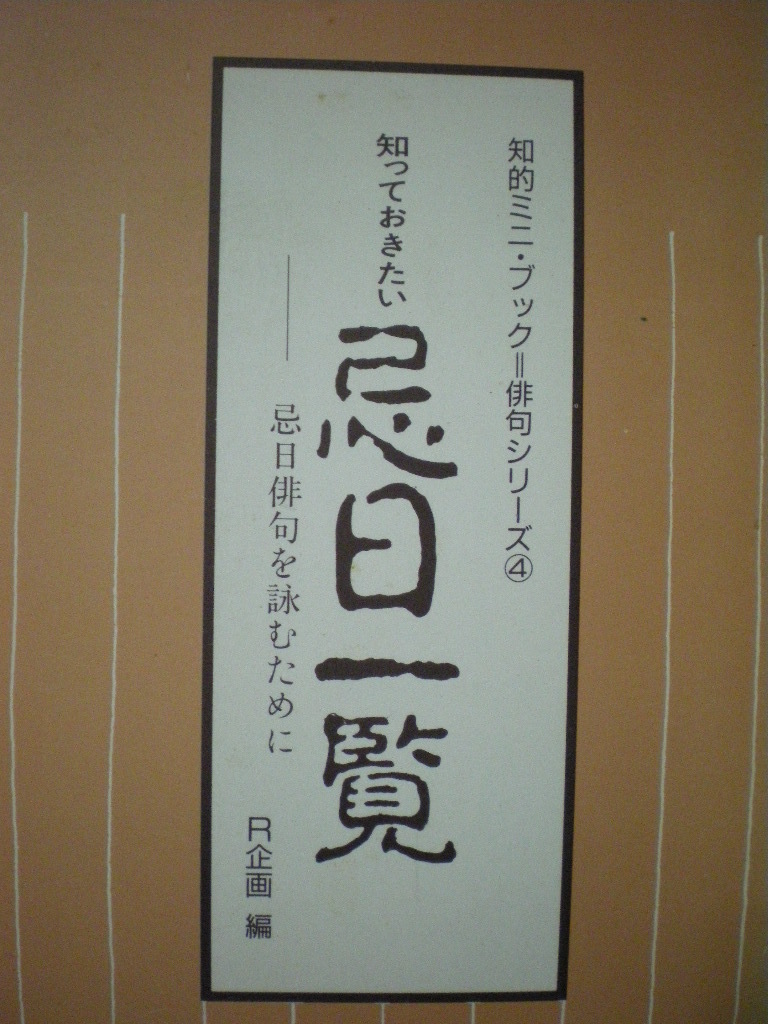 知的ミニ・ブック＝俳句シリーズ④
知っておきたい 忌日一覧
――忌日俳句を詠むために
R企画 編